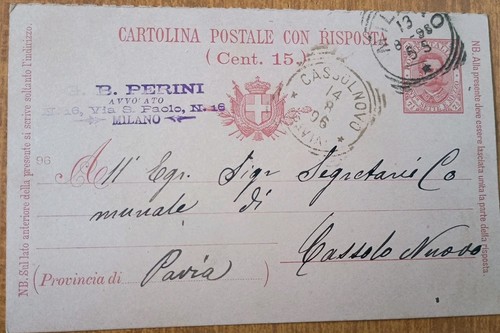 CARTOLINA POSTALE CON RISPOSTA
(Cent. 15.)
B. PERINI
AVVOCATO
N. 16, Via S. Paolo, N. 16
MILANO
MILANO
13
8-96
CASSOLNOVO
14
8
96
(PAVIA)
96
All' Egr. Sigr Segretario Co
munale di
Cassolo Nuovo
(Provincia di Pavia)
NB. Sul lato anteriore della presente si scrive soltanto l'indirizzo.
NB. Alla presente deve essere lasciata unita la parte della risposta.